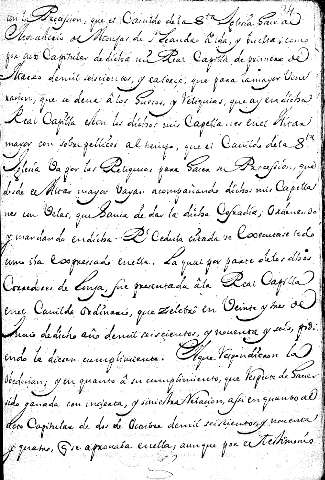 con la Procession, que el Cavildo de la S.ta Yglesia Sale al
Monasterio de Monjas de S. Leandro Yda, y buelta; como
por auto Capitular de dicha mi Real Capilla de primero de
Marzo de mil seiscientos, y catorce, que para la mayor Vene
racion, que se deve a los Guesos, y Reliquias, que ay en dicha
Real Capilla esten los dichos mis Capellanes en el Altar
mayor con sobrepellices al tiempo, que el Cavildo de la S.ta
Yglesia Va por las Reliquias para Sacar en Procession, que
desde el Altar mayor Vayan acompañando dichos mis Capella
nes con Velas, que havia de dar la dicha Cofradia, Ordenando
y mandando en dicha R.l Cedula citada se executase todo
como iba expressado en ella. La qual por parte de los dichos
Corredores de Lonja, fue presentada a la Real Capilla
en el Cavildo Ordinario, que celebró en Veinte y tres de
Junio de dicho año de mil seiscientos, y noventa y seis, pidi
endo la diesen cumplimiento. A que Respondieron la
obedecian; y en quanto a su cumplimiento, que Respecto de haver
sido ganada con incierta, y siniestra Relacion, assi en quanto al
auto Capitular de dos de Octubre de mil seiscientos, y noventa
y quatro, q se aprovaba en ella, aunque por el testimonio